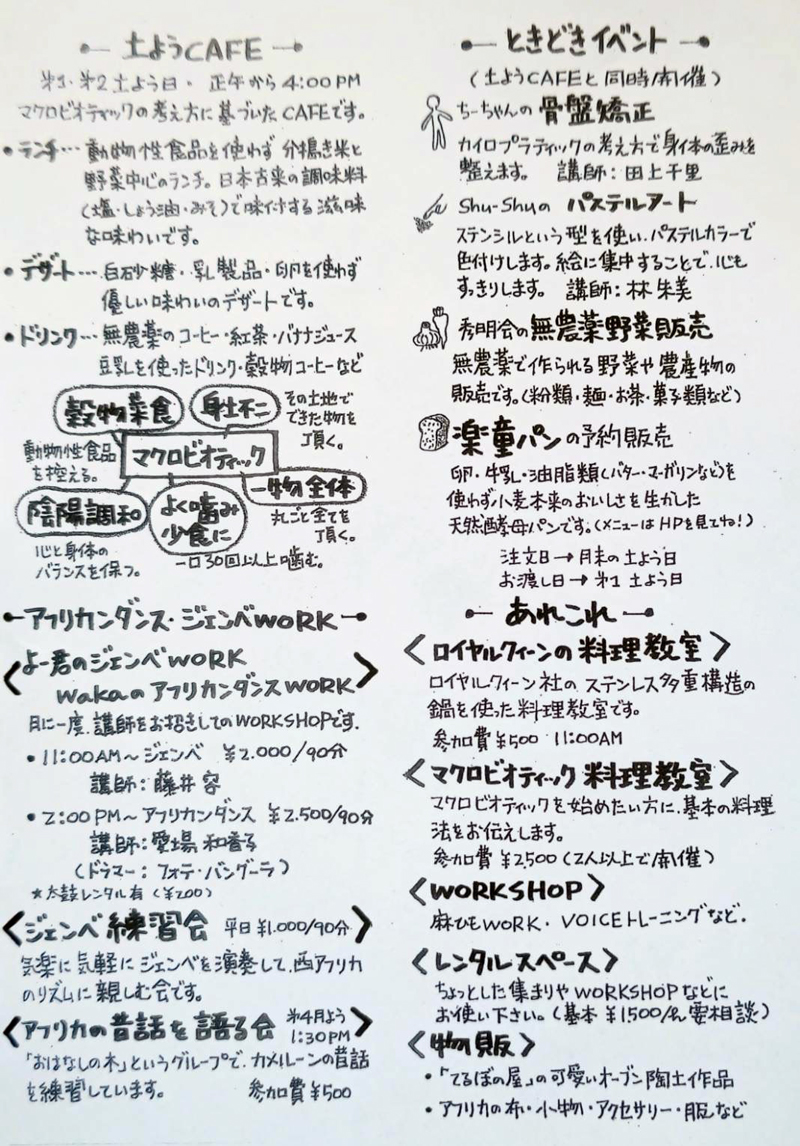 土ようCAFE
第1・第2土よう日・正午から4:00PM
マクロビオティックの考え方に基づいたCAFEです。
・ランチ…動物性食品を使わず分搗き米と
野菜中心のランチ。日本古来の調味料
(塩・しょう油・みそ)で味付する滋味
な味わいです。
・デザート…白砂糖・乳製品・卵を使わず
優しい味わいのデザートです。
・ドリンク…無農薬のコーヒー・紅茶・バナナジュース
豆乳を使ったドリンク・穀物コーヒーなど
穀物菜食
動物性食品
を控える。
身土不二
その土地で
できた物を
頂く。
マクロビオティック
一物全体
丸ごと全てを
頂く。
陰陽調和
心と身体の
バランスを保つ。
よく噛み
少食に
一口30回以上噛む。
アフリカンダンス・ジェンベWORK
〈よー君のジェンベWORK
wakaのアフリカンダンスWORK〉
月に一度、講師をお招きしてのWORKSHOPです。
・11:00AM〜ジェンベ ¥2.000/90分
講師:藤井容
・2:00PM〜アフリカンダンス ¥2.500/90分
講師:愛場和香子
(ドラマー:フォテ・バングーラ)
★太鼓レンタル有(¥200)
〈ジェンベ練習会 平日¥1.000/90分〉
気楽に気軽にジェンベを演奏して、西アフリカ
のリズムに親しむ会です。
〈アフリカの昔話を語る会 第4月よう 1:30PM〉
「おはなしの木」というグループで、カメルーンの昔話
を練習しています。 参加費¥500
ときどきイベント
(土ようCAFEと同時開催)
ちーちゃんの骨盤矯正
カイロプラティックの考え方で身体の歪みを
整えます。 講師:田上千里
Shu-Shuのパステルアート
ステンシルという型を使い、パステルカラーで
色付けします。絵に集中することで、心も
すっきりします。 講師:林朱美
秀明会の無農薬野菜販売
無農薬で作られる野菜や農産物の
販売です。(粉類・麺・お茶・菓子類など)
楽童パンの予約販売
卵・牛乳・油脂類(バター・マーガリンなど)を
使わず小麦本来のおいしさを生かした
天然酵母パンです。(メニューはHPを見てね!)
注文日→月末の土よう日
お渡し日→第1土よう日
あれこれ
〈ロイヤルクィーンの料理教室〉
ロイヤルクィーン社のステンレス多重構造の
鍋を使った料理教室です。
参加費¥500 11:00AM
〈マクロビオティック料理教室〉
マクロビオティックを始めたい方に、基本の料理
法をお伝えします。
参加費¥2,500(2人以上で開催)
〈WORKSHOP〉
麻ひもWORK・VOICEトレーニングなど。
〈レンタルスペース〉
ちょっとした集まりやWORKSHOPなどに
お使い下さい。(基本¥1500/h、要相談)
〈物販〉
・「てるぼの屋」の可愛いオーブン陶土作品
・アフリカの布・小物・アクセサリー・服など